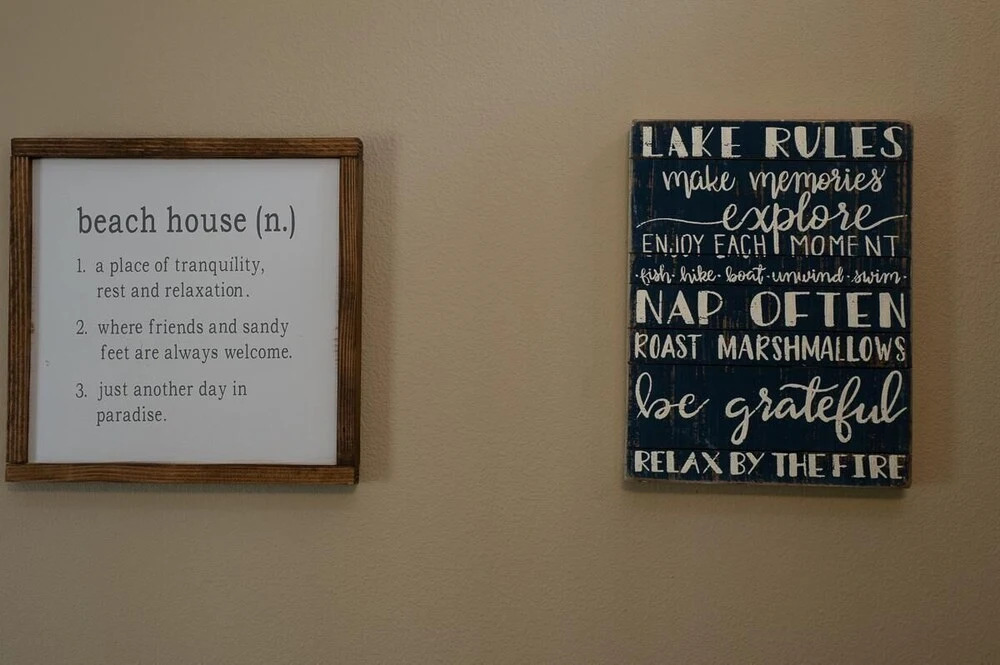 beach house (n.)
1. a place of tranquility,
rest and relaxation.
2. where friends and sandy
feet are always welcome.
3. just another day in
paradise.
LAKE RULES
make memories
explore
ENJOY EACH MOMENT
·fish·hike·boat·unwind·swim·
NAP OFTEN
ROAST MARSHMALLOWS
be grateful
RELAX BY THE FIRE